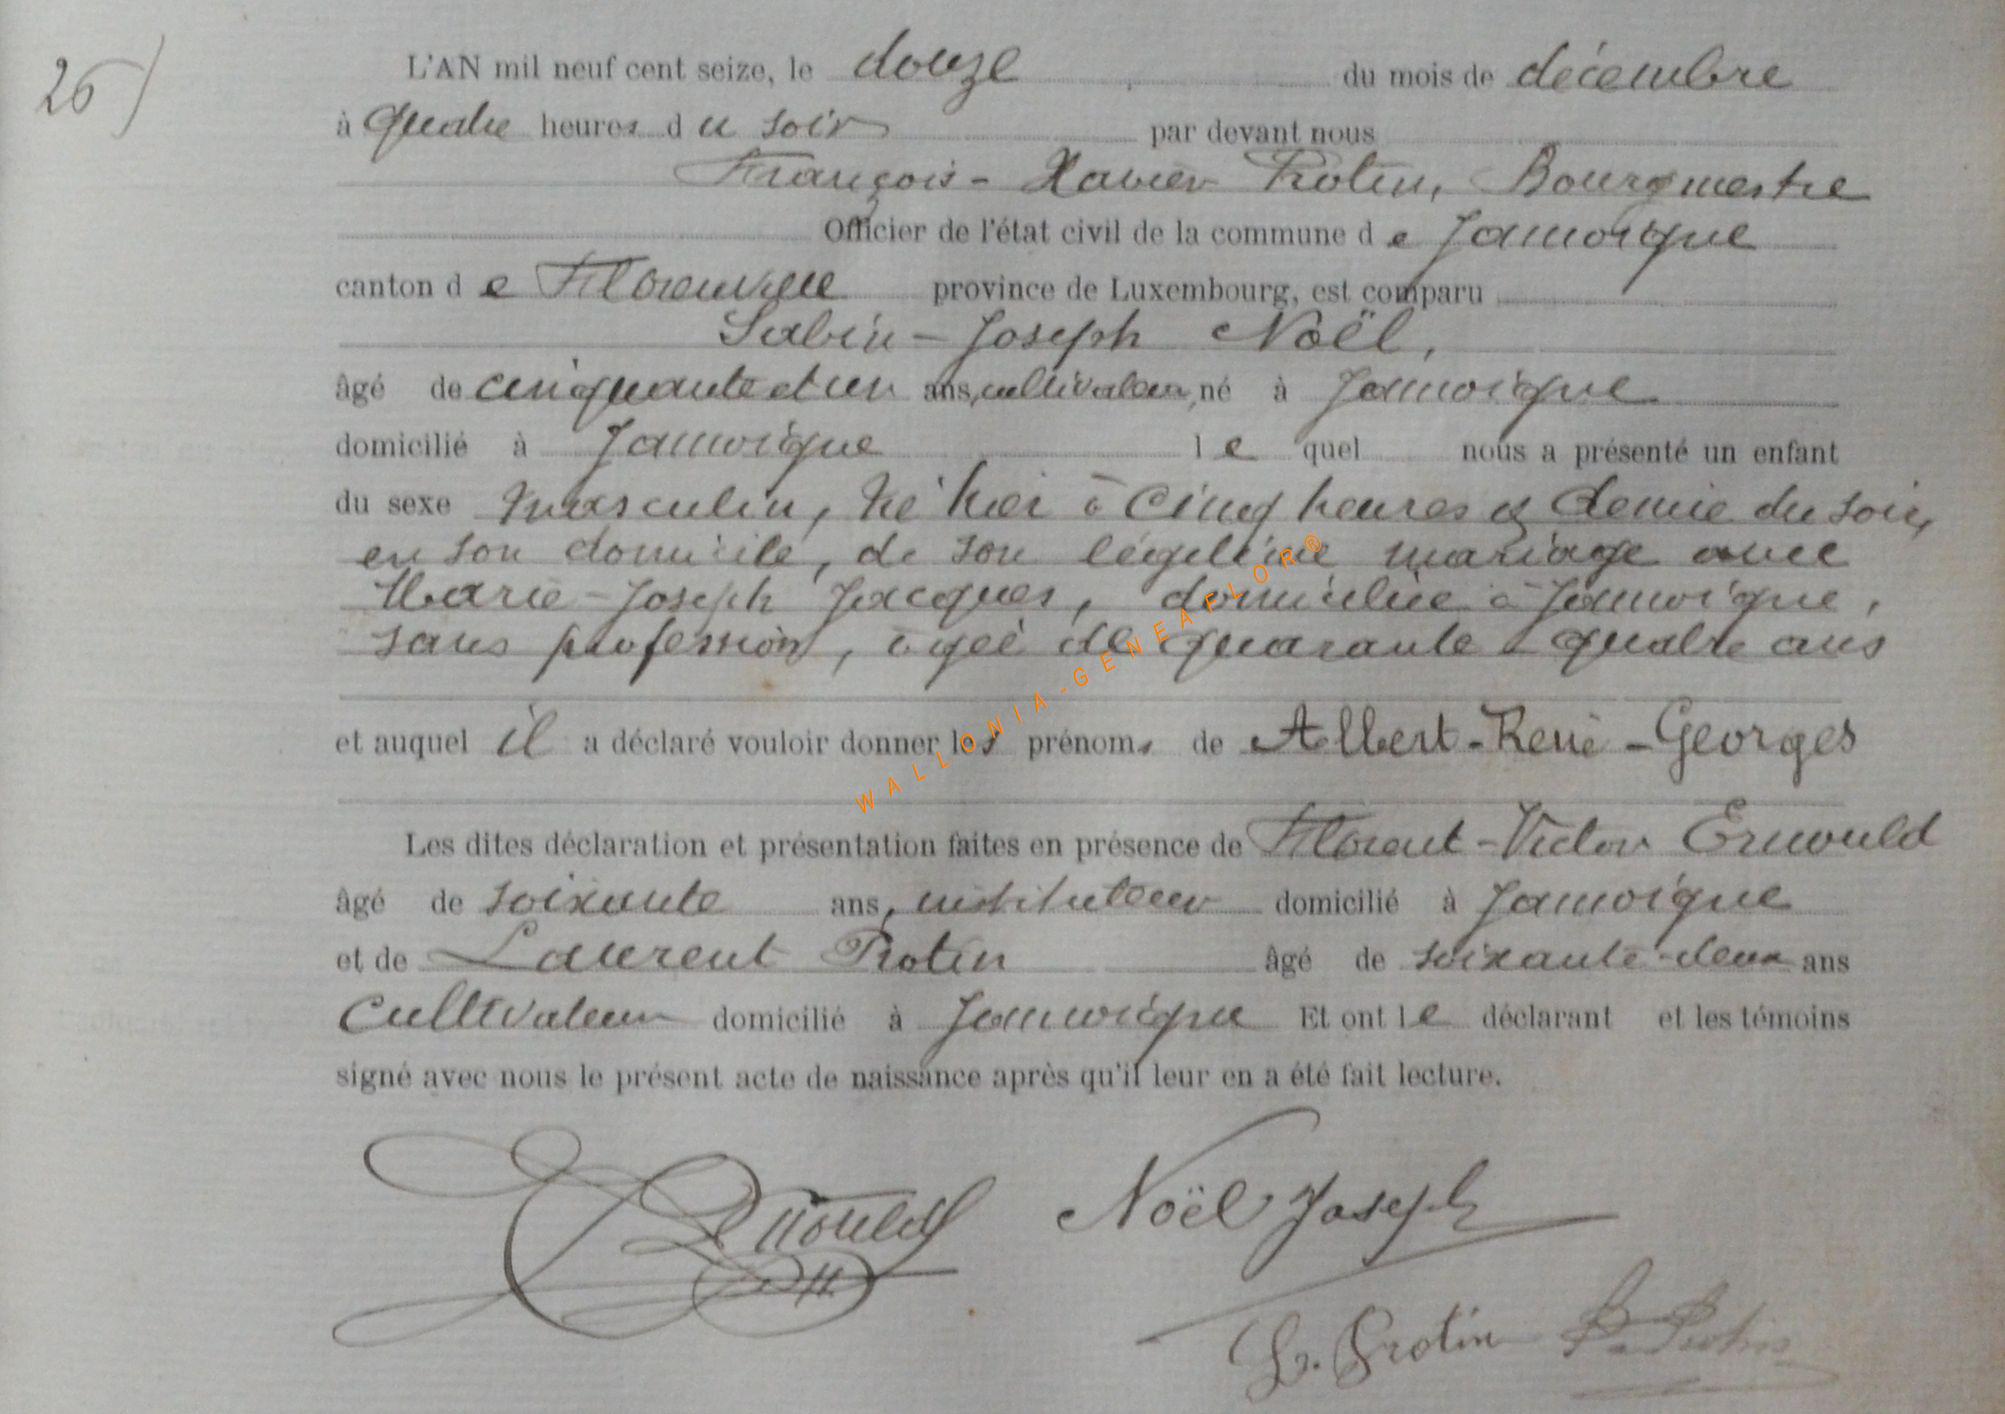 26)
L'AN mil neuf cent seize, le douze du mois de décembre
à quatre heures du soir par devant nous
François-Xavier Protin, Bourgmestre
Officier de l'état civil de la commune de Jamoigne
canton de Florenville province de Luxembourg, est comparu
Sabin-Joseph Noël,
âgé de cinquante et un ans, cultivateur, né à Jamoigne
domicilié à Jamoigne lequel nous a présenté un enfant
du sexe masculin, né hier à cinq heures & demie du soir,
en son domicile, de son légitime mariage avec
Marie-Joseph Jacques, domiciliée à Jamoigne,
sans profession, âgée de quarante quatre ans
et auquel il a déclaré vouloir donner les prénoms de Albert-René-Georges
Les dites déclaration et présentation faites en présence de Florent-Victor Ernould
âgé de soixante ans, instituteur domicilié à Jamoigne
et de Laurent Protin âgé de soixante-deux ans
Cultivateur domicilié à Jamoigne Et ont le déclarant et les témoins
signé avec nous le présent acte de naissance après qu'il leur en a été fait lecture.
WALLONIA-GENEAFLOR®
Ernould Noël Joseph
L. Protin Protin